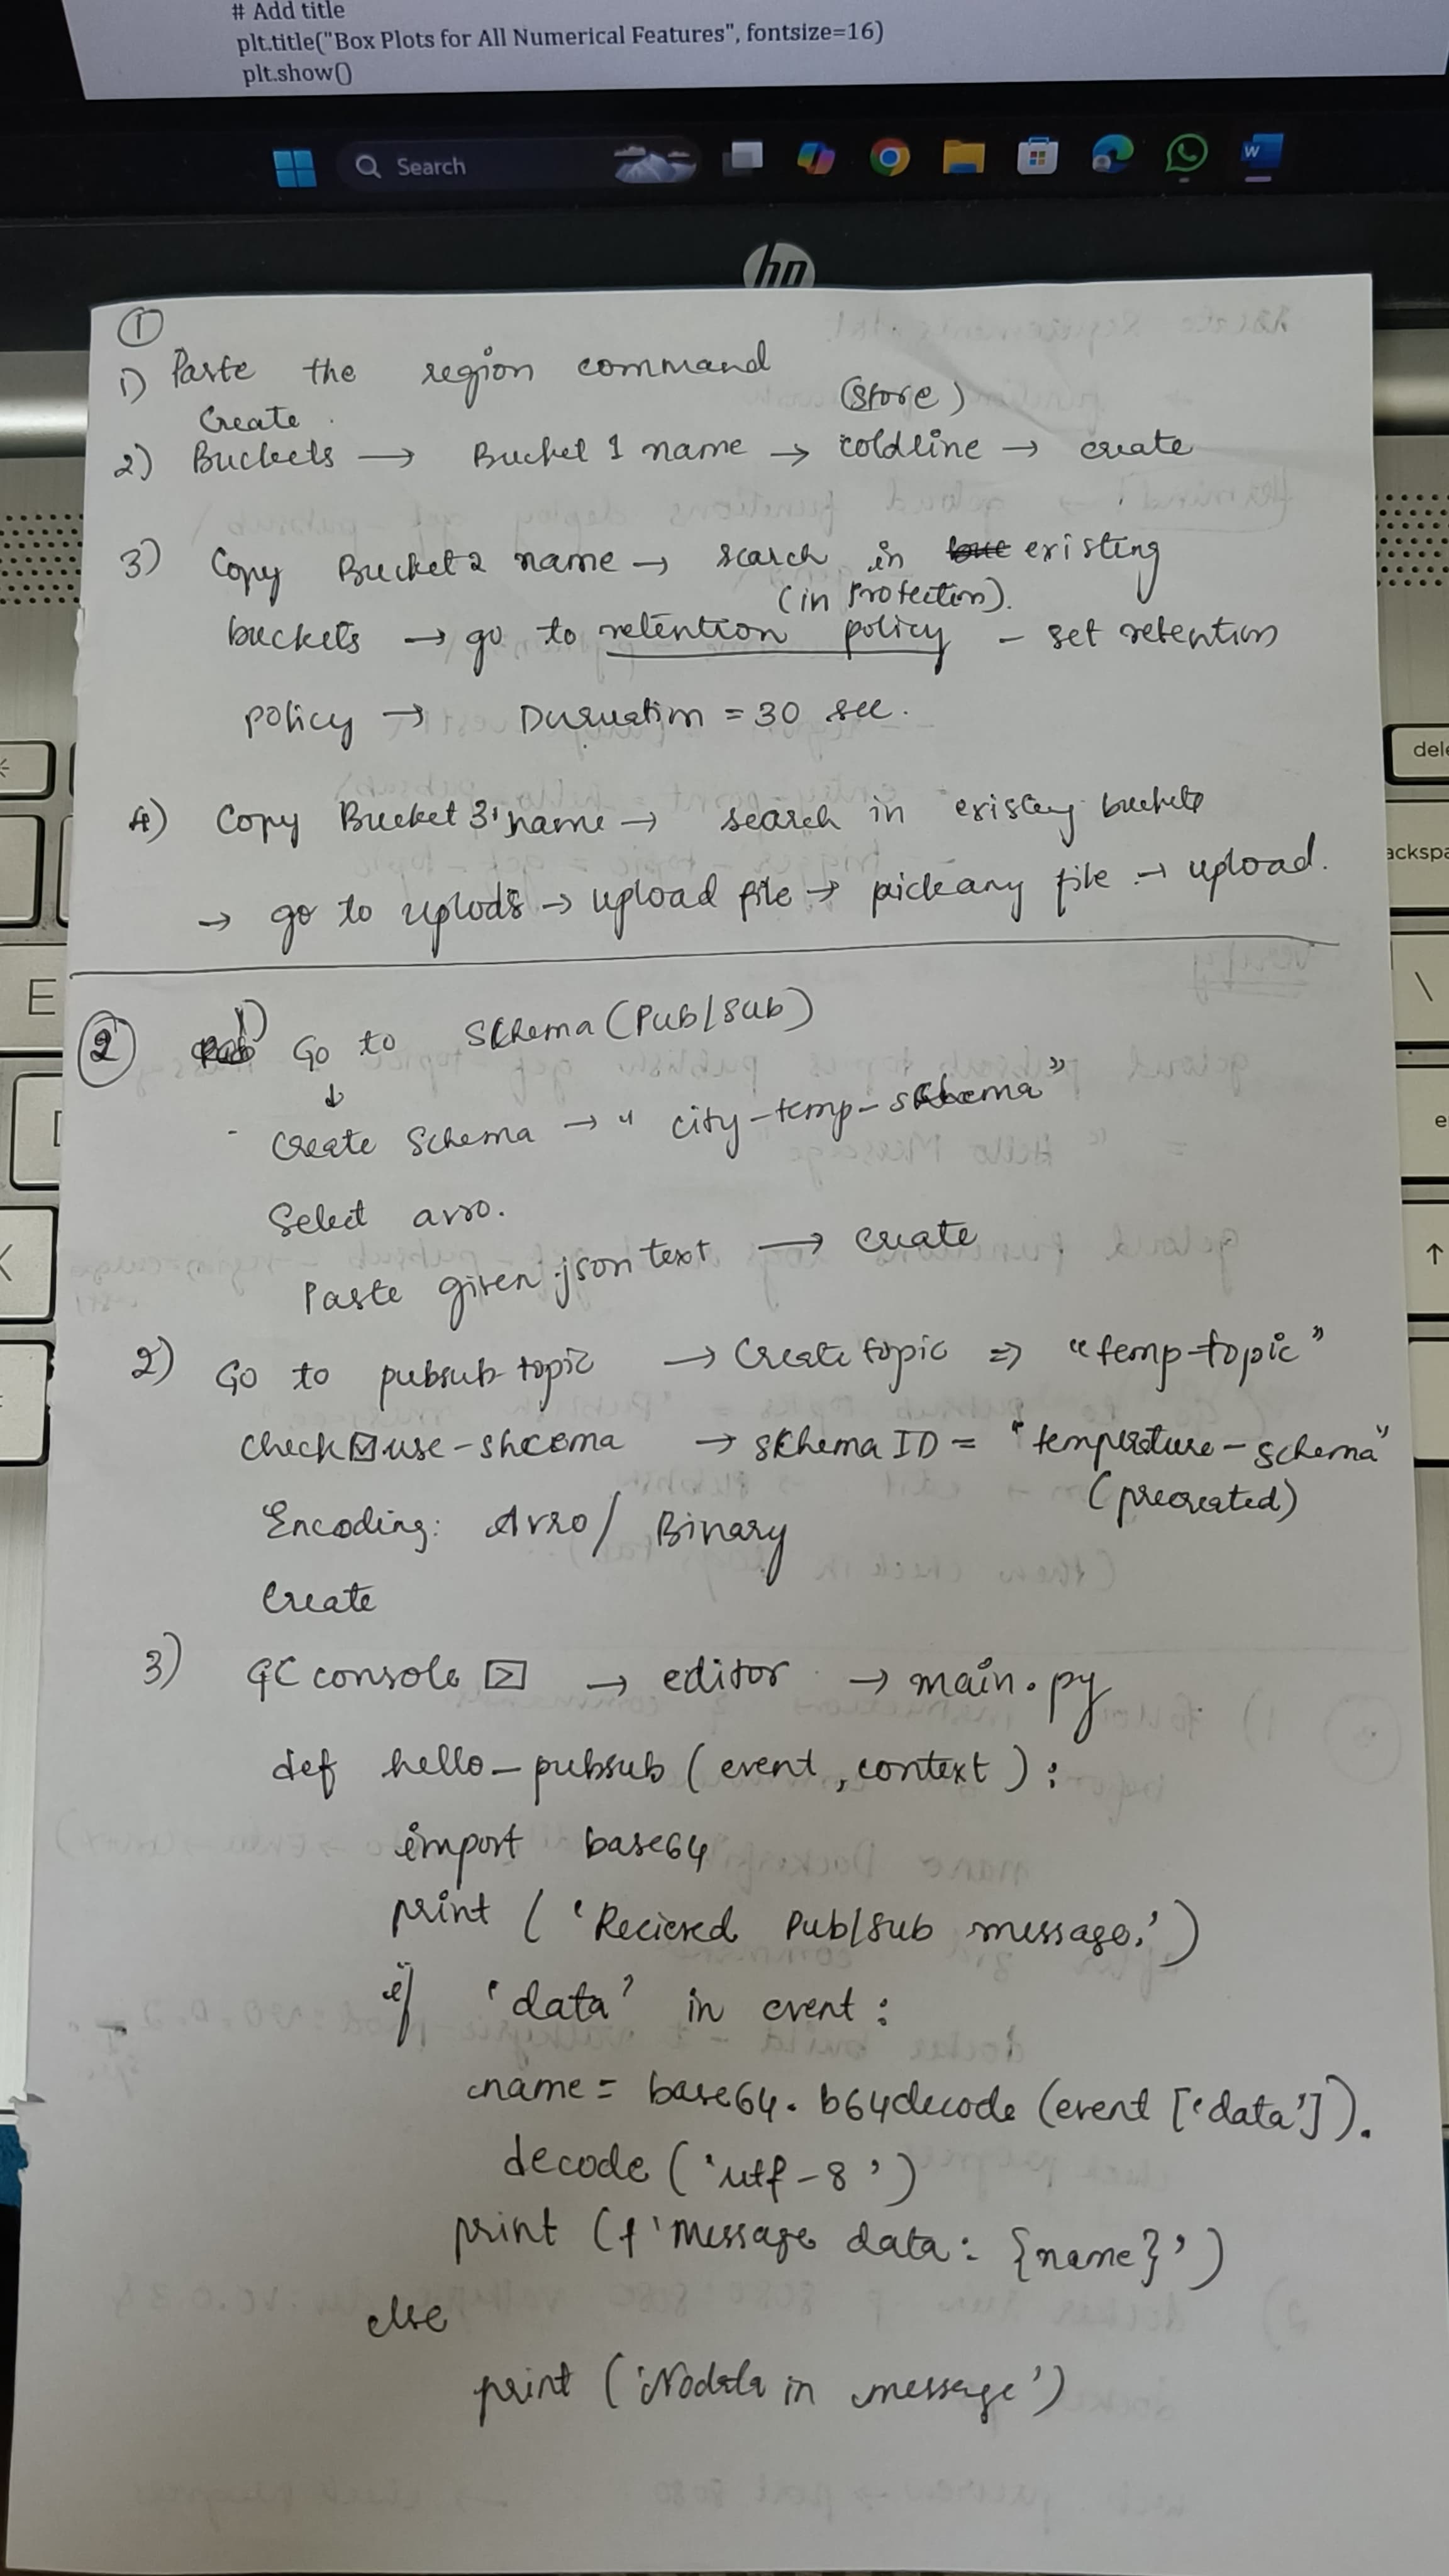 # Add title
plt.title("Box Plots for All Numerical Features", fontsize=16)
plt.show()
Search
hp
①
1) Paste the region command
Create (store)
2) Buckets → Bucket 1 name → coldline → create
3) Copy Bucket 2 name → search in existing
(in Protection).
buckets → go to retention policy – set retention
policy → Duruation = 30 sec.
4) Copy Bucket 3 name → search in existing buckets
→ go to uplods → upload file → pick any file → upload.
② 1) Go to Schema (Pub/Sub)
↓
Create Schema → " city-temp-schema"
Select avro.
Paste given json text → create
2) Go to pubsub topic → Create topic ⇒ "temp-topic"
check ☑ use-shcema → schema ID = "temperature-schema"
(precreated)
Encoding: Avro/ Binary
Create
3) GC console → editor → main.py
def hello_pubsub (event, context):
import base64
print ('Recieved Pub/Sub message.')
if 'data' in event:
name = base64.b64decode (event ['data']).
decode ('utf-8')
print (f'Message data: {name}')
else
print ('No data in message')
E
K
dele
ackspa
\
e
↑